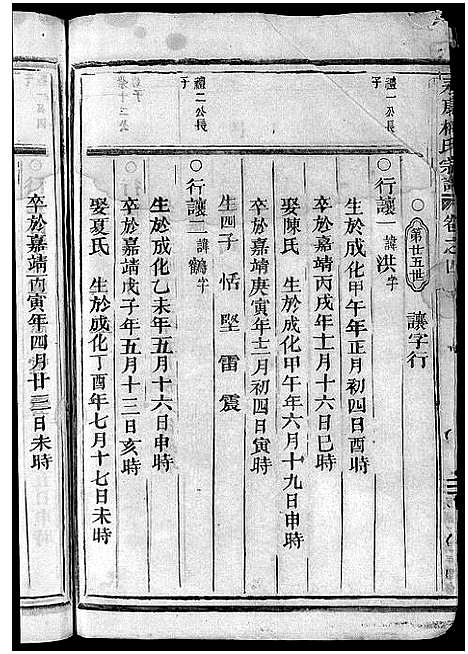 氏宗譜 卷之四
○第廿五世 讓字行
禮一公長子
○行讓一 諱洪 字
生於成化甲午年正月初四日酉時
卒於嘉靖丙戌年十一月十六日巳時
娶陳氏 生於成化甲午年六月十九日申時
卒於嘉靖庚寅年十二月初四日寅時
生四子 恬 堅 雷 震
禮二公長子
○行讓二 諱鶴 字
生於成化乙未年五月十六日申時
卒於嘉靖戊子年五月十三日亥時
娶夏氏 生於成化丁酉年七月十七日未時
卒於嘉靖丙寅年四月廿三日未時